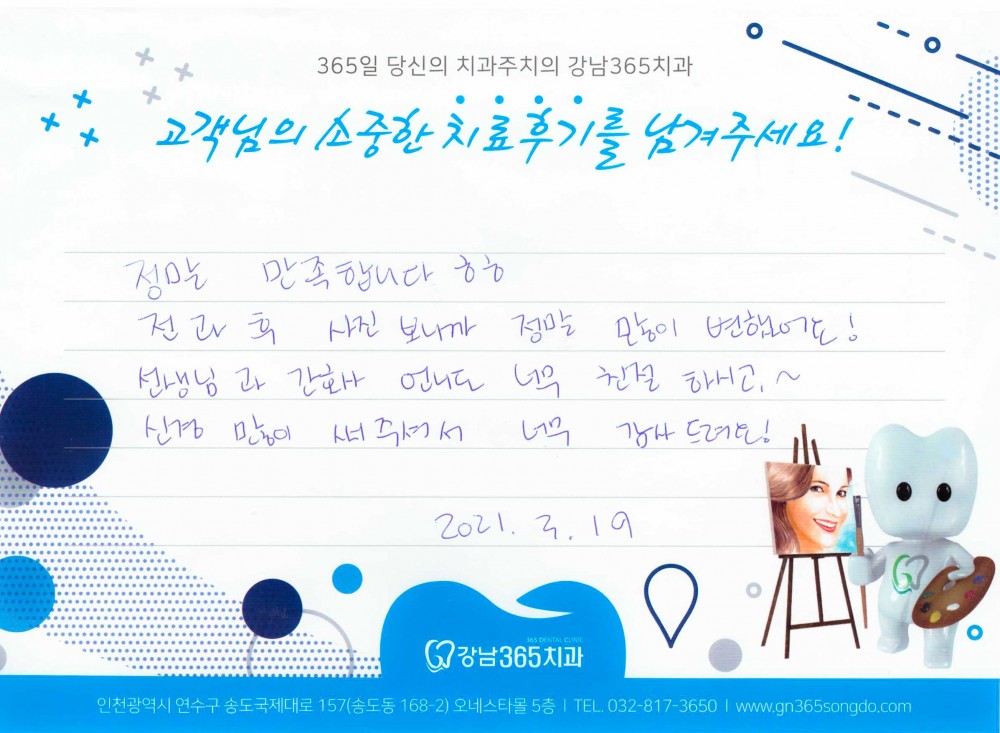 365일 당신의 치과주치의 강남365치과
고객님의 소중한 치료후기를 남겨주세요!
정말 만족합니다 ㅎㅎ
전 과 후 사진 보니까 정말 많이 변했어요!
선생님 과 간호사 언니도 너무 친절 하시고,~
신경 많이 써주셔서 너무 감사드려요!
2021. 3. 19
365 DENTAL CLINIC
강남365치과
인천광역시 연수구 송도국제대로 157(송도동 168-2) 오네스타몰 5층 | TEL. 032-817-3650 | www.gn365songdo.com